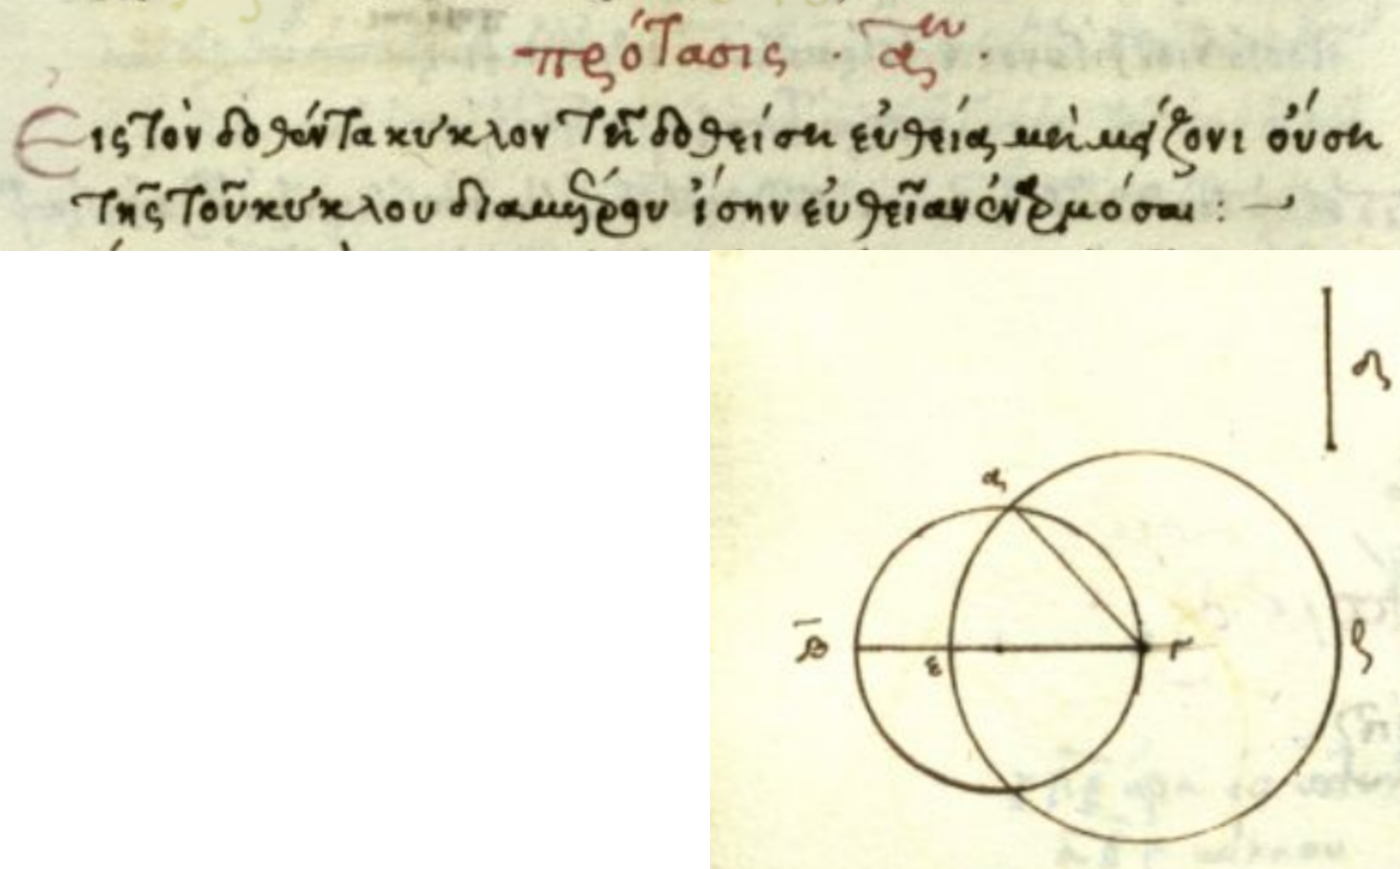 πρότασις · α ·
Εἰς τὸν δοθέντα κύκλον τῆ δοθείση εὐθεία μὴ μείζονι οὔση
τῆς τοῦ κύκλου διαμέτρου ἴσην εὐθεῖαν ἐναρμόσαι : –
δ
α
β ε γ ζ